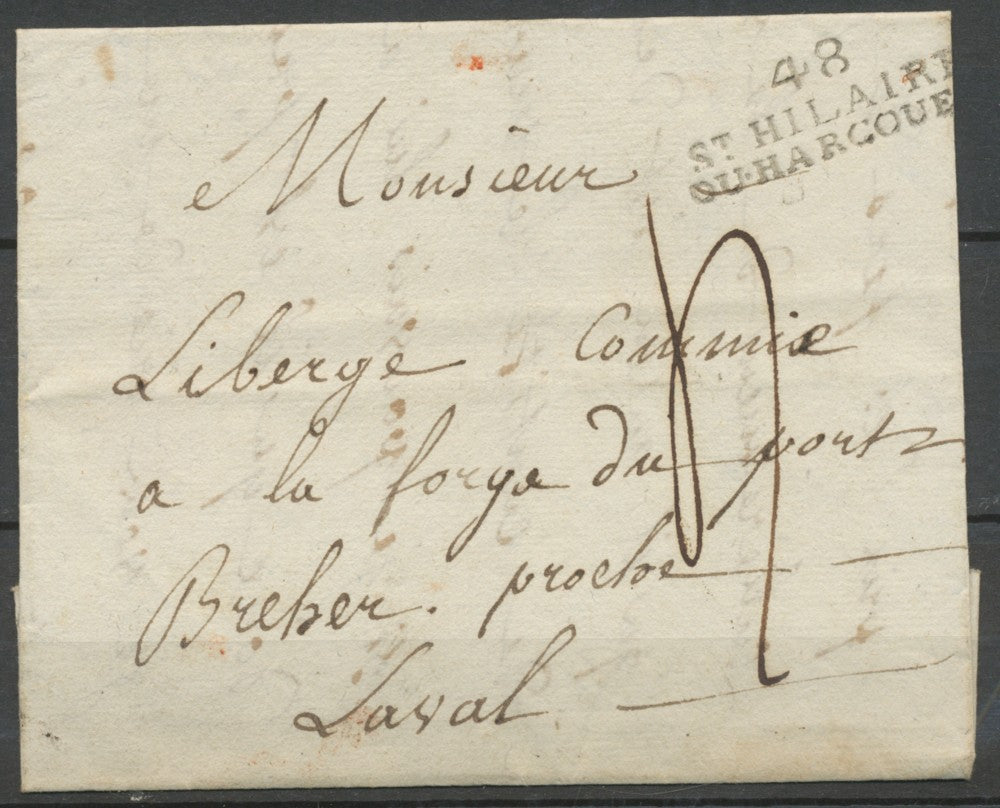 48
ST. HILAIRE
DU-HARCOUE
Monsieur
Liberge Commis
a la forge du port
Breher. proche
Laval